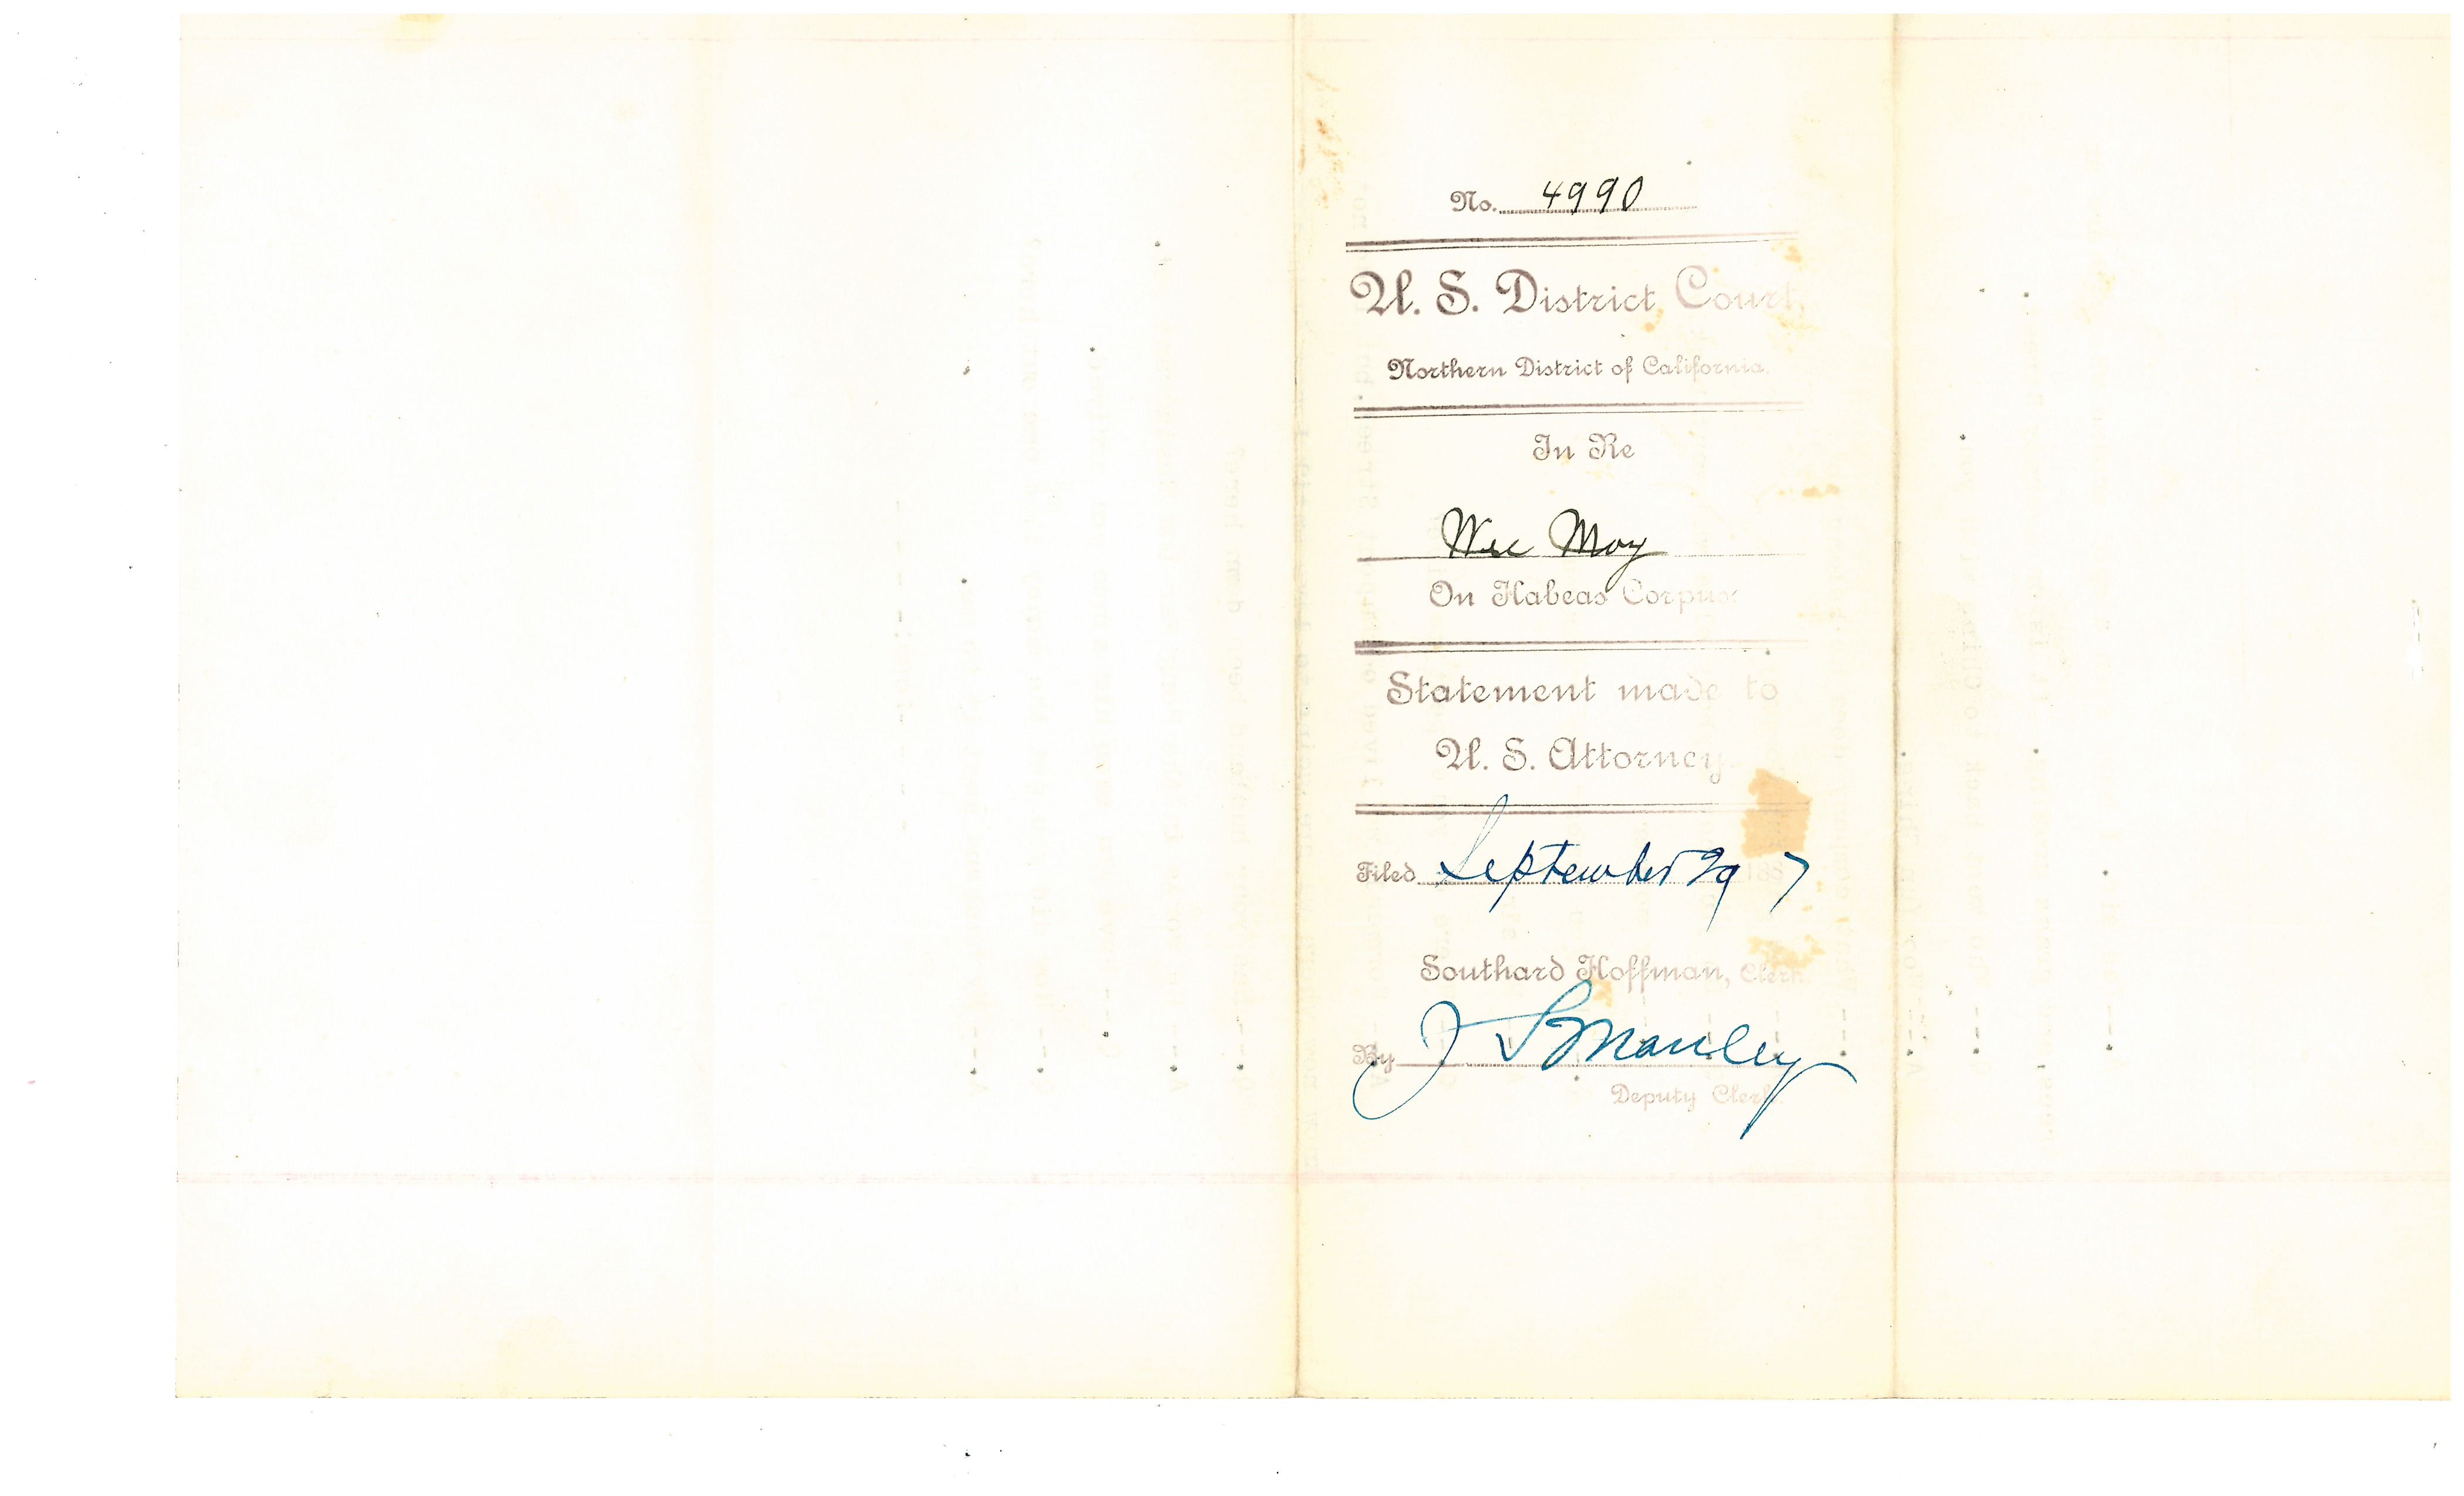 No. 4990
U. S. District Court,
Northern District of California.
In Re
Wee Moy
On Habeas Corpus
Statement made to
U. S. Attorney.
Filed September 29 1887
Southard Hoffman, Clerk.
By J. S. Manley
Deputy Clerk.